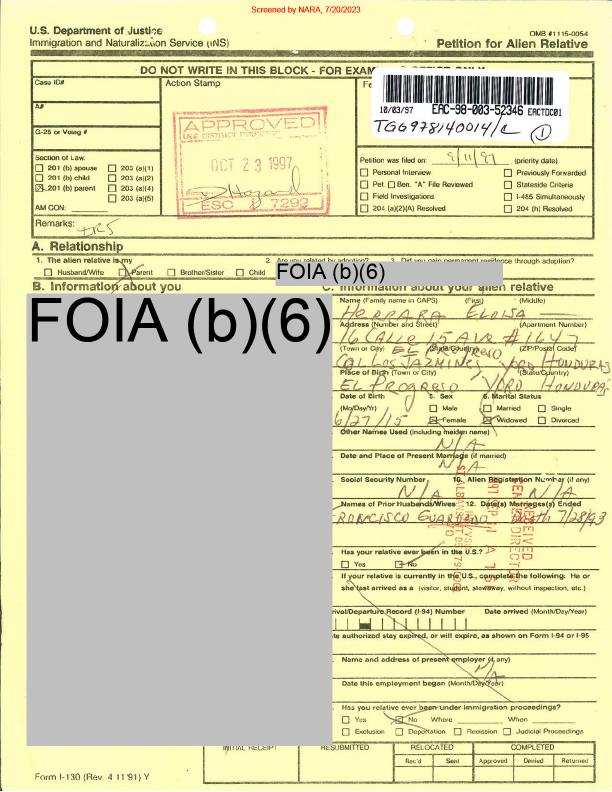 Screened by NARA, 7/20/2023
U.S. Department of Justice
Immigration and Naturalization Service (INS)
OMB #1115-0054
Petition for Alien Relative
DO NOT WRITE IN THIS BLOCK - FOR EXAM OFFICE ONLY
Case ID#
Action Stamp
Fe
A#
G-28 or Volag #
10/03/97 EAC-98-003-52346 EACTDC01
TGG978140014/C 1
APPROVED
OCT 23 1997
ESC 7292
Section of Law:
201 (b) spouse 203 (a)(1)
201 (b) child 203 (a)(2)
201 (b) parent 203 (a)(4)
203 (a)(5)
AM CON:
Petition was filed on: 9/11/97 (priority date)
Personal Interview Previously Forwarded
Pet. Ben. "A" File Reviewed Stateside Criteria
Field Investigations I-485 Simultaneously
204 (a)(2)(A) Resolved 204 (h) Resolved
Remarks: IR5
A. Relationship
1. The alien relative is my 2. Are you related by adoption? 3. Did you gain permanent residence through adoption?
Husband/Wife Parent Brother/Sister Child
FOIA (b)(6)
B. Information about you
C. Information about your alien relative
FOIA (b)(6)
Name (Family name in CAPS) (First) (Middle)
HERRARA ELOISA
Address (Number and Street) (Apartment Number)
16 CALLE 15 AVE # 1647
(Town or City) (State/Country) (ZIP/Postal Code)
COL LOS JAZMINES EL PROGRESO YORO HONDURAS
Place of Birth (Town or City) (State/Country)
EL PROGRESO YORO HONDURAS
Date of Birth 5. Sex 6. Marital Status
(Mo/Day/Yr) Male Married Single
6/27/15 Female Widowed Divorced
Other Names Used (including maiden name)
N/A
Date and Place of Present Marriage (if married)
N/A
Social Security Number 10. Alien Registration Number (if any)
N/A N/A
Names of Prior Husbands/Wives 12. Date(s) Marriages(s) Ended
FRANCISCO Death 7/28/93
RECEIVED
Has your relative ever been in the U.S.?
Yes No
If your relative is currently in the U.S., complete the following: He or
she last arrived as a (visitor, student, stowaway, without inspection, etc.)
rival/Departure Record (I-94) Number Date arrived (Month/Day/Year)
te authorized stay expired, or will expire, as shown on Form I-94 or I-95
Name and address of present employer (if any)
N/A
Date this employment began (Month/Day/Year)
Has your relative ever been under immigration proceedings?
Yes No Where When
Exclusion Deportation Recission Judicial Proceedings
INITIAL RECEIPT RESUBMITTED RELOCATED COMPLETED
Rec'd Sent Approved Denied Returned
Form I-130 (Rev. 4/11/91) Y